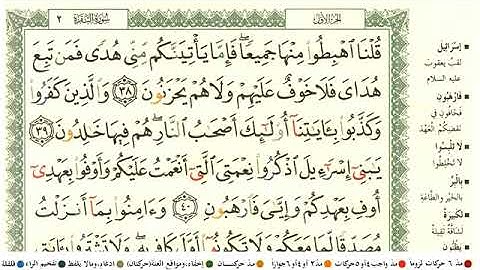 الجزء الأول
سورة البقرة
٢
قُلْنَا ٱهْبِطُوا۟ مِنْهَا جَمِيعًا ۖ فَإِمَّا يَأْتِيَنَّكُم مِّنِّى هُدًى فَمَن تَبِعَ
هُدَاىَ فَلَا خَوْفٌ عَلَيْهِمْ وَلَا هُمْ يَحْزَنُونَ ٣٨ وَٱلَّذِينَ كَفَرُوا۟
وَكَذَّبُوا۟ بِـَٔايَـٰتِنَآ أُو۟لَـٰٓئِكَ أَصْحَـٰبُ ٱلنَّارِ ۖ هُمْ فِيهَا خَـٰلِدُونَ ٣٩
يَـٰبَنِىٓ إِسْرَٰٓءِيلَ ٱذْكُرُوا۟ نِعْمَتِىَ ٱلَّتِىٓ أَنْعَمْتُ عَلَيْكُمْ وَأَوْفُوا۟ بِعَهْدِىٓ
أُوفِ بِعَهْدِكُمْ وَإِيَّـٰىَ فَٱرْهَبُونِ ٤٠ وَءَامِنُوا۟ بِمَآ أَنزَلْتُ
مُصَدِّقًا لِّمَا مَعَكُمْ وَلَا تَكُونُوٓا۟ أَوَّلَ كَافِرٍۭ بِهِۦ ۖ وَلَا تَشْتَرُوا۟ بِـَٔايَـٰتِى
إسرائيل
لقب يعقوب
عليه السلام
فارهبون
فخافون في
نقضكم العهد
لا تلبسوا
لا تخلطوا
بالبر
بالخير والطاعة
لكبيرة
لشاقة ثقيلة
يظنون
مد ٦ حركات لزوما
مد ٢ أو ٤ أو ٦ جوازا
مد واجب ٤ أو ٥ حركات
مد حركتان
إخفاء، ومواقع الغنة (حركتان)
ادغام، وما لا يلفظ
تفخيم الراء
قلقلة